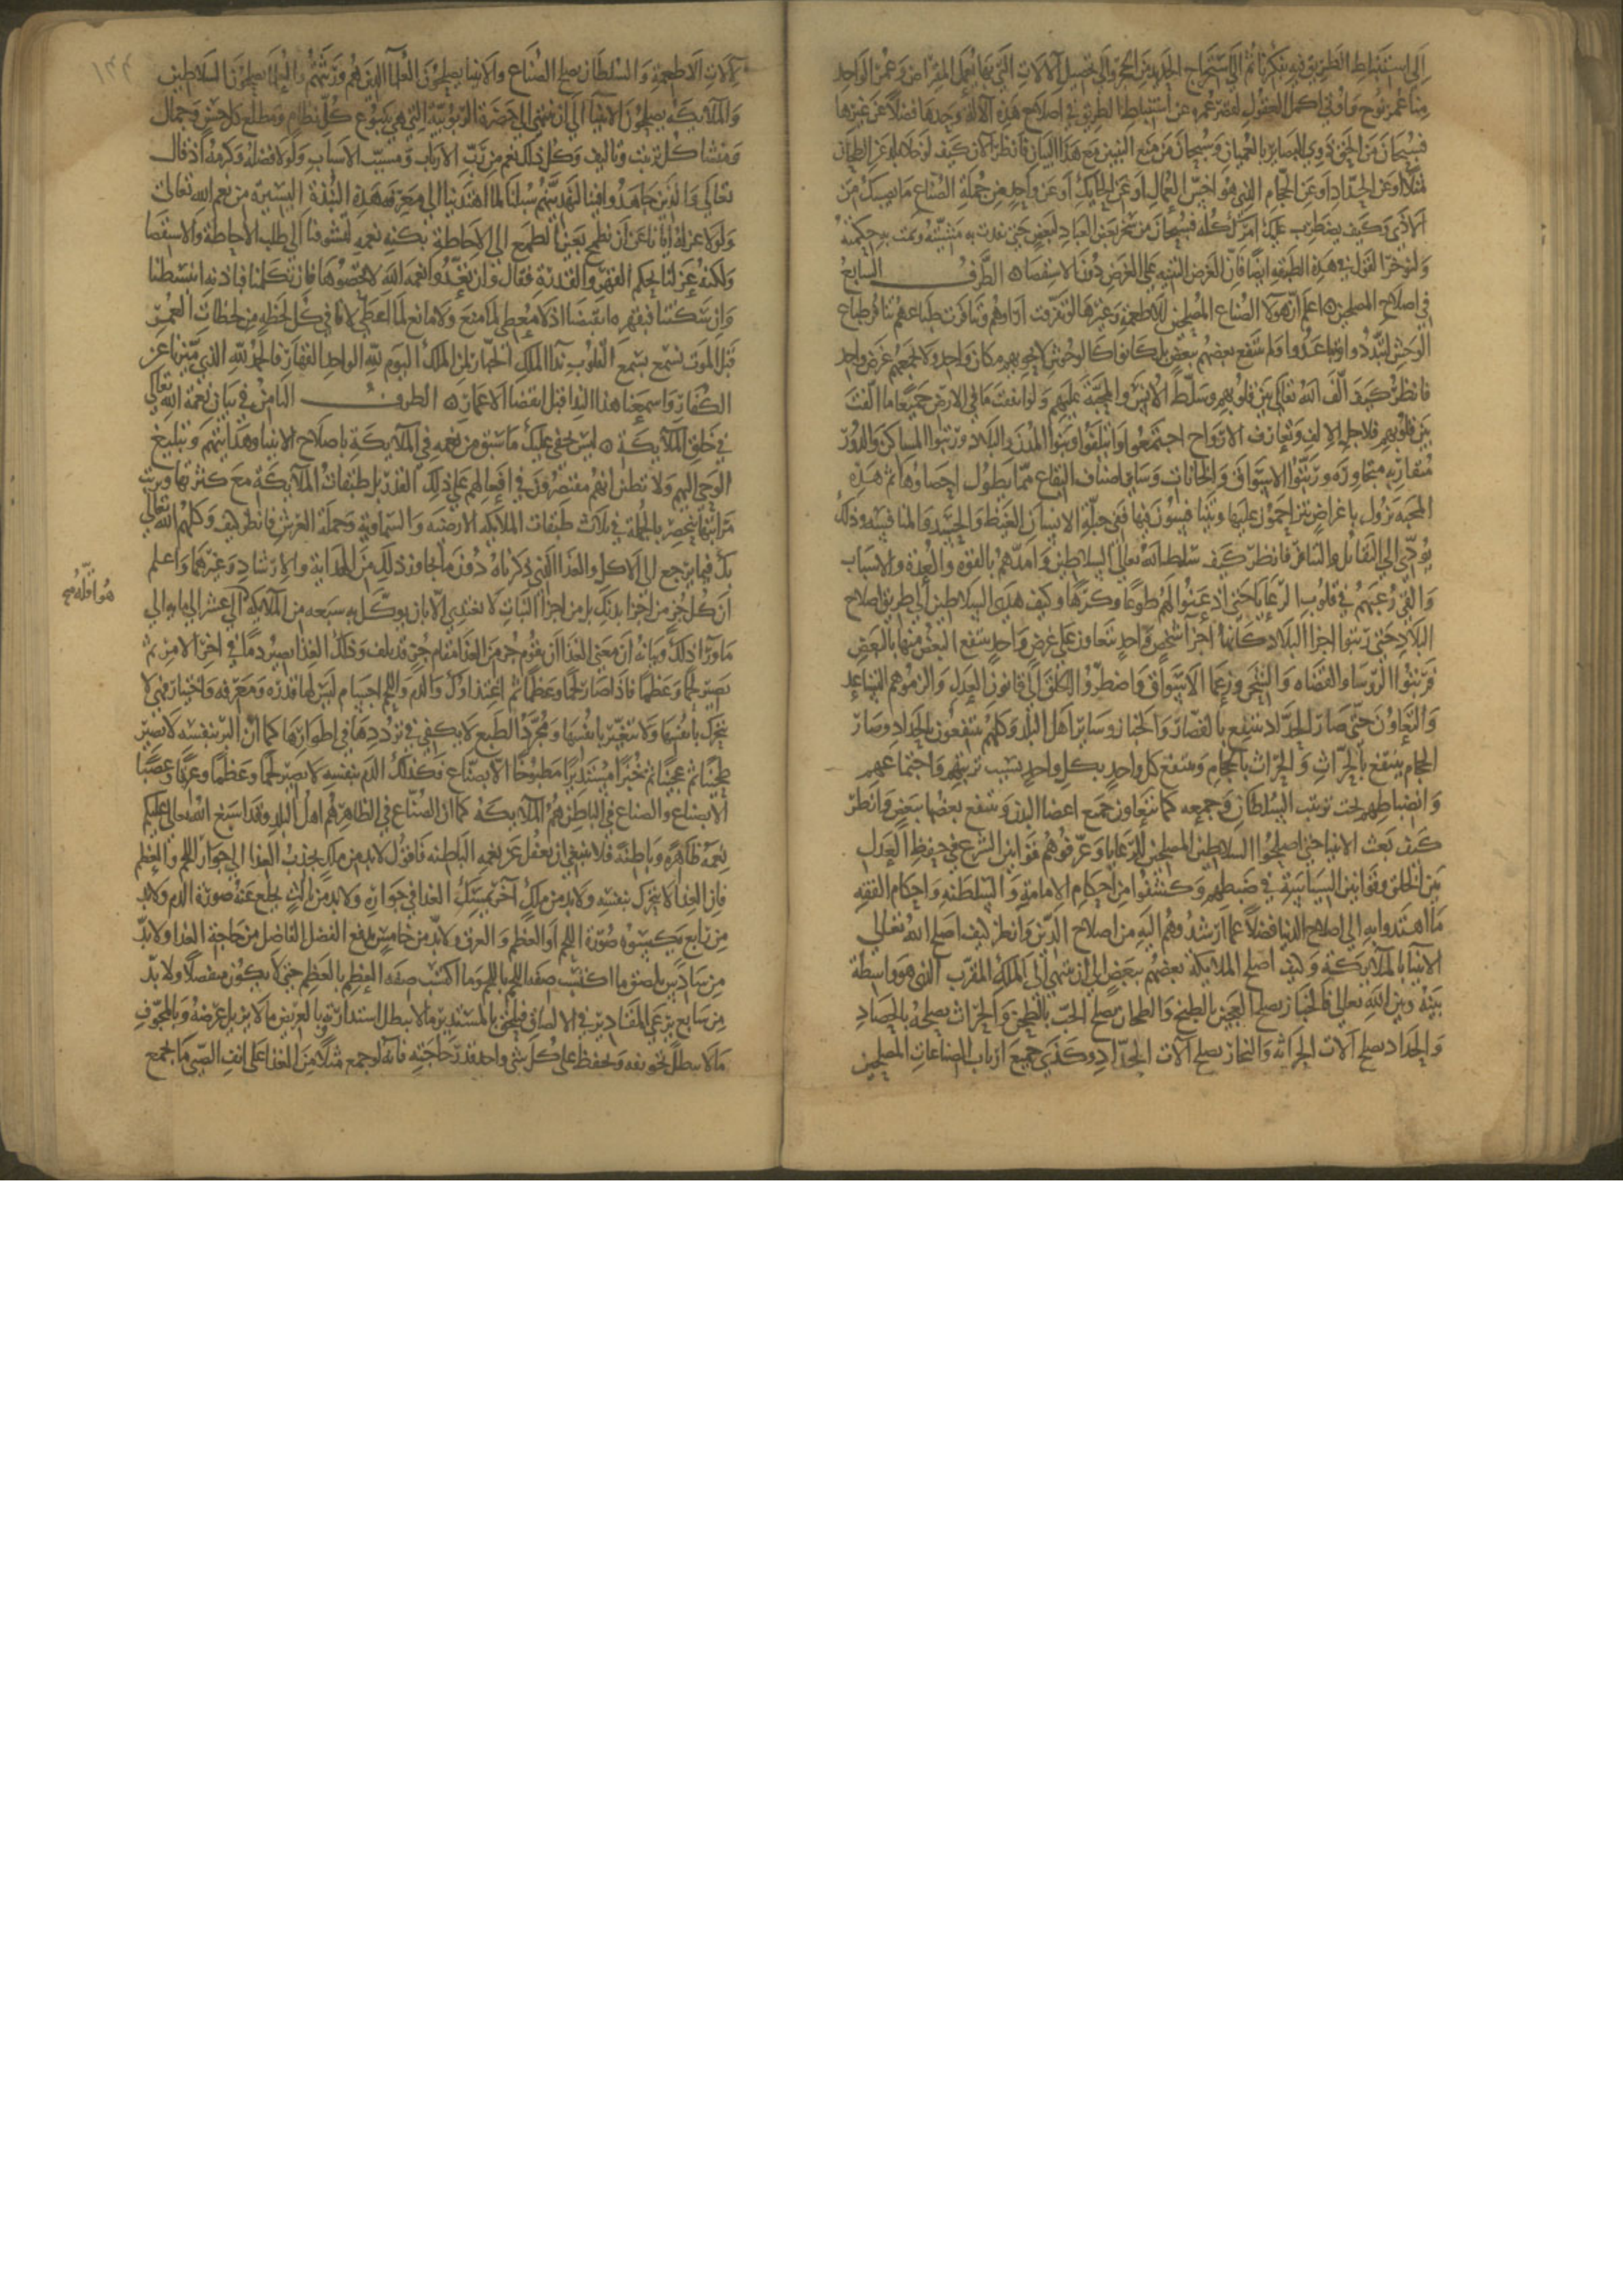 إلى استنباط الطريق فيه بفكرنا ثم إلى استخراج الحديد من الحجر وإلى تحصيل الآلات التي بها يعمل المقراض وعمر الواحد
منا عمر نوح وأوتي أكمل العقول لقصر عمره عن استنباط الطريق في إصلاح هذه الآلة وحدها فضلا عن غيرها
فسبحان من ألحق ذوي الأبصار بالعميان وسبحان من منع التبيين مع هذا البيان فانظر الآن كيف لو خلا بلدك عن الطحان
مثلا أو عن الحداد أو عن الحجام الذي هو أخس العمال أو عن الحايك أو عن واحد من جملة الصناع ما يصيبك من
الأذى وكيف يضطرب عليك أمرك كله فسبحان من سخر بعض العباد لبعض حتى نفذت به مشيئته وتمت به حكمته
ولنوجز القول في هذه الطبقة أيضا فإن الغرض التنبيه على الغرض دون الاستقصاء الطرف السابع
في إصلاح المصلحين اعلم أن هؤلاء الصناع المصلحين للأطعمة وغيرها لو تفرقت آراؤهم وتنافرت طباعهم تنافر طباع
الوحش لتبددوا وتباعدوا ولم ينتفع بعضهم ببعض بل كانوا كالوحوش لا يحويهم مكان واحد ولا يجمعهم غرض واحد
فانظر كيف ألف الله تعالى بين قلوبهم وسلط الأنس والمحبة عليهم ولو أنفقت ما في الأرض جميعا ما ألفت
بين قلوبهم فلأجل الإلف وتعارف الأرواح اجتمعوا وائتلفوا وبنوا المدن والبلاد ورتبوا المساكن والدور
متقاربة متجاورة ورتبوا الأسواق والخانات وسائر أصناف البقاع مما يطول إحصاؤها ثم هذه
المحبة تزول بأغراض يتزاحمون عليها ويتنافسون فيها ففي جبلة الإنسان الغيظ والحسد والمنافسة وذلك
يؤدي إلى التقاتل والتنافر فانظر كيف سلط الله تعالى السلاطين وأمدهم بالقوة والعدة والأسباب
وألقى رعبهم في قلوب الرعايا حتى أذعنوا لهم طوعا وكرها وكيف هدى السلاطين إلى طريق إصلاح
البلاد حتى رتبوا أجزاء البلاد كأنها أجزاء شخص واحد تتعاون على غرض واحد ينتفع البعض منها بالبعض
فرتبوا الرؤساء والقضاة والسجن وزعماء الأسواق واضطروا الخلق إلى قانون العدل وألزموهم التساعد
والتعاون حتى صار الحداد ينتفع بالقصاب والخباز وسائر أهل البلد وكلهم ينتفعون بالحداد وصار
الحجام ينتفع بالحراث والحراث بالحجام وينتفع كل واحد بكل واحد بسبب ترتيبهم واجتماعهم
وانضباطهم تحت ترتيب السلطان وجمعه كما يتعاون جميع أعضاء البدن وينتفع بعضها ببعض وانظر
كيف بعث الأنبياء حتى أصلحوا السلاطين المصلحين للرعايا وعرفوهم قوانين الشرع في حفظ العدل
بين الخلق وقوانين السياسة في ضبطهم وكشفوا من أحكام الإمامة والسلطنة وأحكام الفقه
ما اهتدوا به إلى إصلاح الدنيا فضلا عما أرشدوهم إليه من إصلاح الدين وانظر كيف أصلح الله تعالى
الأنبياء بالملائكة وكيف أصلح الملائكة بعضهم ببعض إلى أن ينتهي إلى الملك المقرب الذي هو واسطة
بينه وبين الله تعالى فالخباز يصلح العجين بالطبخ والطحان يصلح الحب بالطحن والحراث يصلحه بالحصاد
والحداد يصلح آلات الحراثة والنجار يصلح آلات الحداد وكذى جميع أرباب الصناعات المصلحين
لآلات الأطعمة والسلطان يصلح الصناع والأنبياء يصلحون العلماء الذين هم ورثتهم والعلماء يصلحون السلاطين
والملائكة يصلحون الأنبياء إلى أن ينتهي إلى حضرة الربوبية التي هي ينبوع كل نظام ومطلع كل حسن وجمال
ومنشأ كل ترتيب وتأليف وكل ذلك نعم من رب الأرباب ومسبب الأسباب ولولا فضله وكرمه إذ قال
تعالى والذين جاهدوا فينا لنهدينهم سبلنا لما اهتدينا إلى معرفة هذه النبذة اليسيرة من نعم الله تعالى
ولولا عزله إيانا عن أن نطمح بعين الطمع إلى الإحاطة بكنه نعمه لتشوفنا إلى طلب الإحاطة والاستقصاء
ولكنه عزلنا بحكم القهر والقدرة فقال وإن تعدوا نعمة الله لا تحصوها فإن تكلمنا فبإذنه انبسطنا
وإن سكتنا فبقهره انقبضنا إذ لا معطي لما منع ولا مانع لما أعطى لأنا في كل لحظة من لحظات العمر
قبل الموت نسمع بسمع القلوب نداء الملك الجبار لمن الملك اليوم لله الواحد القهار فالحمد لله الذي ميزنا عن
الكفار وأسمعنا هذا النداء قبل انقضاء الأعمار الطرف الثامن في بيان نعمة الله تعالى
في خلق الملائكة ليس يخفى عليك ما سبق من نعمه في الملائكة بإصلاح الأنبياء وهدايتهم وتبليغ
الوحي إليهم ولا تظنن أنهم مقتصرون في أفعالهم على ذلك القدر بل طبقات الملائكة مع كثرتها وترتيب
مراتبها تنحصر بالجملة في ثلاث طبقات الملائكة الأرضية والسماوية وحملة العرش فانظر كيف وكلهم الله تعالى
بك فيما يرجع إلى الأكل والغذاء الذي ذكرناه دون ما يجاوز ذلك من الهداية والإرشاد وغيرهما واعلم
أن كل جزء من أجزاء بدنك بل من أجزاء النبات لا يغتذي إلا بأن يوكل به سبعة من الملائكة إلى عشرة إلى مائة إلى
هو أقله صح
ما وراء ذلك وبيانه أن معنى الغذاء أن يقوم جزء من الغذاء مقام جزء قد تلف وذلك الغذاء يصير دما في آخر الأمر ثم
يصير لحما وعظما فإذا صار لحما وعظما تم اغتذاؤك والدم واللحم أجسام ليس لها قدرة ومعرفة واختيار فهي لا
تتحرك بأنفسها ولا تتغير بأنفسها ومجرد الطبع لا يكفي في ترددها في أطوارها كما أن البر بنفسه لا يصير
طحينا ثم عجينا ثم خبزا مستديرا مطبوخا إلا بصناع فكذلك الدم بنفسه لا يصير لحما وعظما وعرقا وعصبا
إلا بصناع والصناع في الباطن هم الملائكة كما أن الصناع في الظاهر هم أهل البلد وقد أسبغ الله تعالى عليكم
نعمه ظاهرة وباطنة فلا ينبغي أن تغفل عن نعمه الباطنة فأقول لا بد من ملك يجذب الغذاء إلى جوار اللحم والعظم
فإن الغذاء لا يتحرك بنفسه ولا بد من ملك آخر يمسك الغذاء في جواره ولا بد من ثالث يخلع عنه صورة الدم ولا بد
من رابع يكسوه صورة اللحم أو العظم والعرق ولا بد من خامس يدفع الفضل الفاضل من حاجة الغذاء ولا بد
من سادس يلصق ما اكتسب صفة اللحم باللحم وما اكتسب صفة العظم بالعظم حتى لا يكون منفصلا ولا بد
من سابع يرعى المقادير في الإلصاق فيلحق بالمستدير ما لا يبطل استدارته وبالعريض ما لا يزيل عرضه وبالمجوف
ما لا يبطل تجويفه ويحفظ على كل شيء واحد قدر حاجته فإنه لو جمع مثلا من الغذاء على أنف الصبي ما يجمع